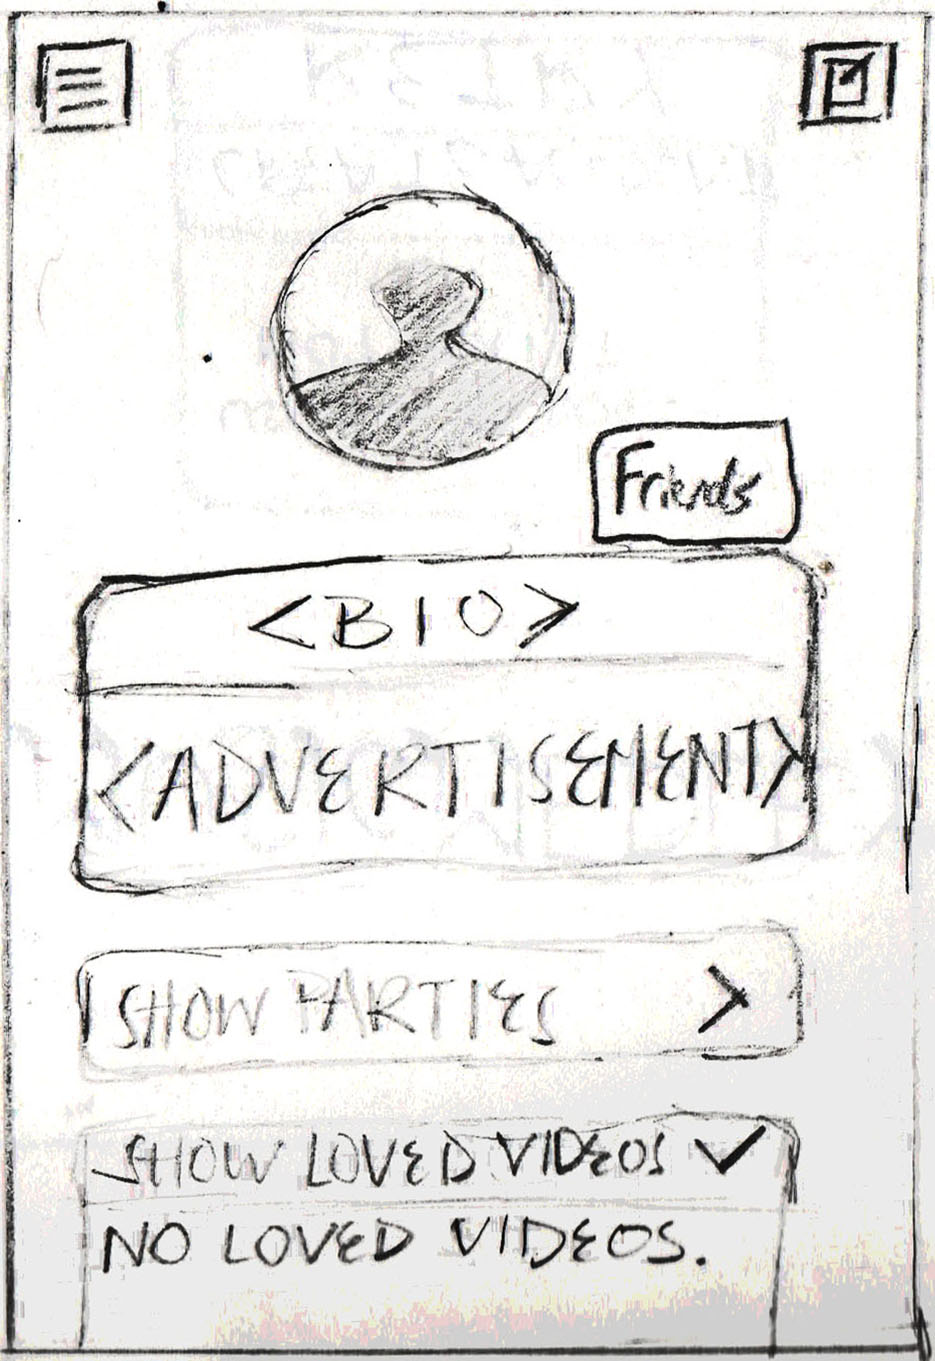 Friends
<BIO>
<ADVERTISEMENT>
SHOW PARTIES >
SHOW LOVED VIDEOS
NO LOVED VIDEOS.